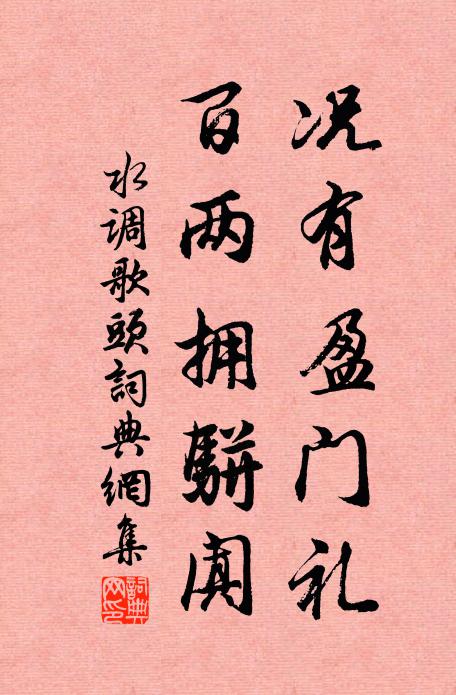 况有盈门礼
百两拥駢阗
水调歌頭詞典網集
詞典網印